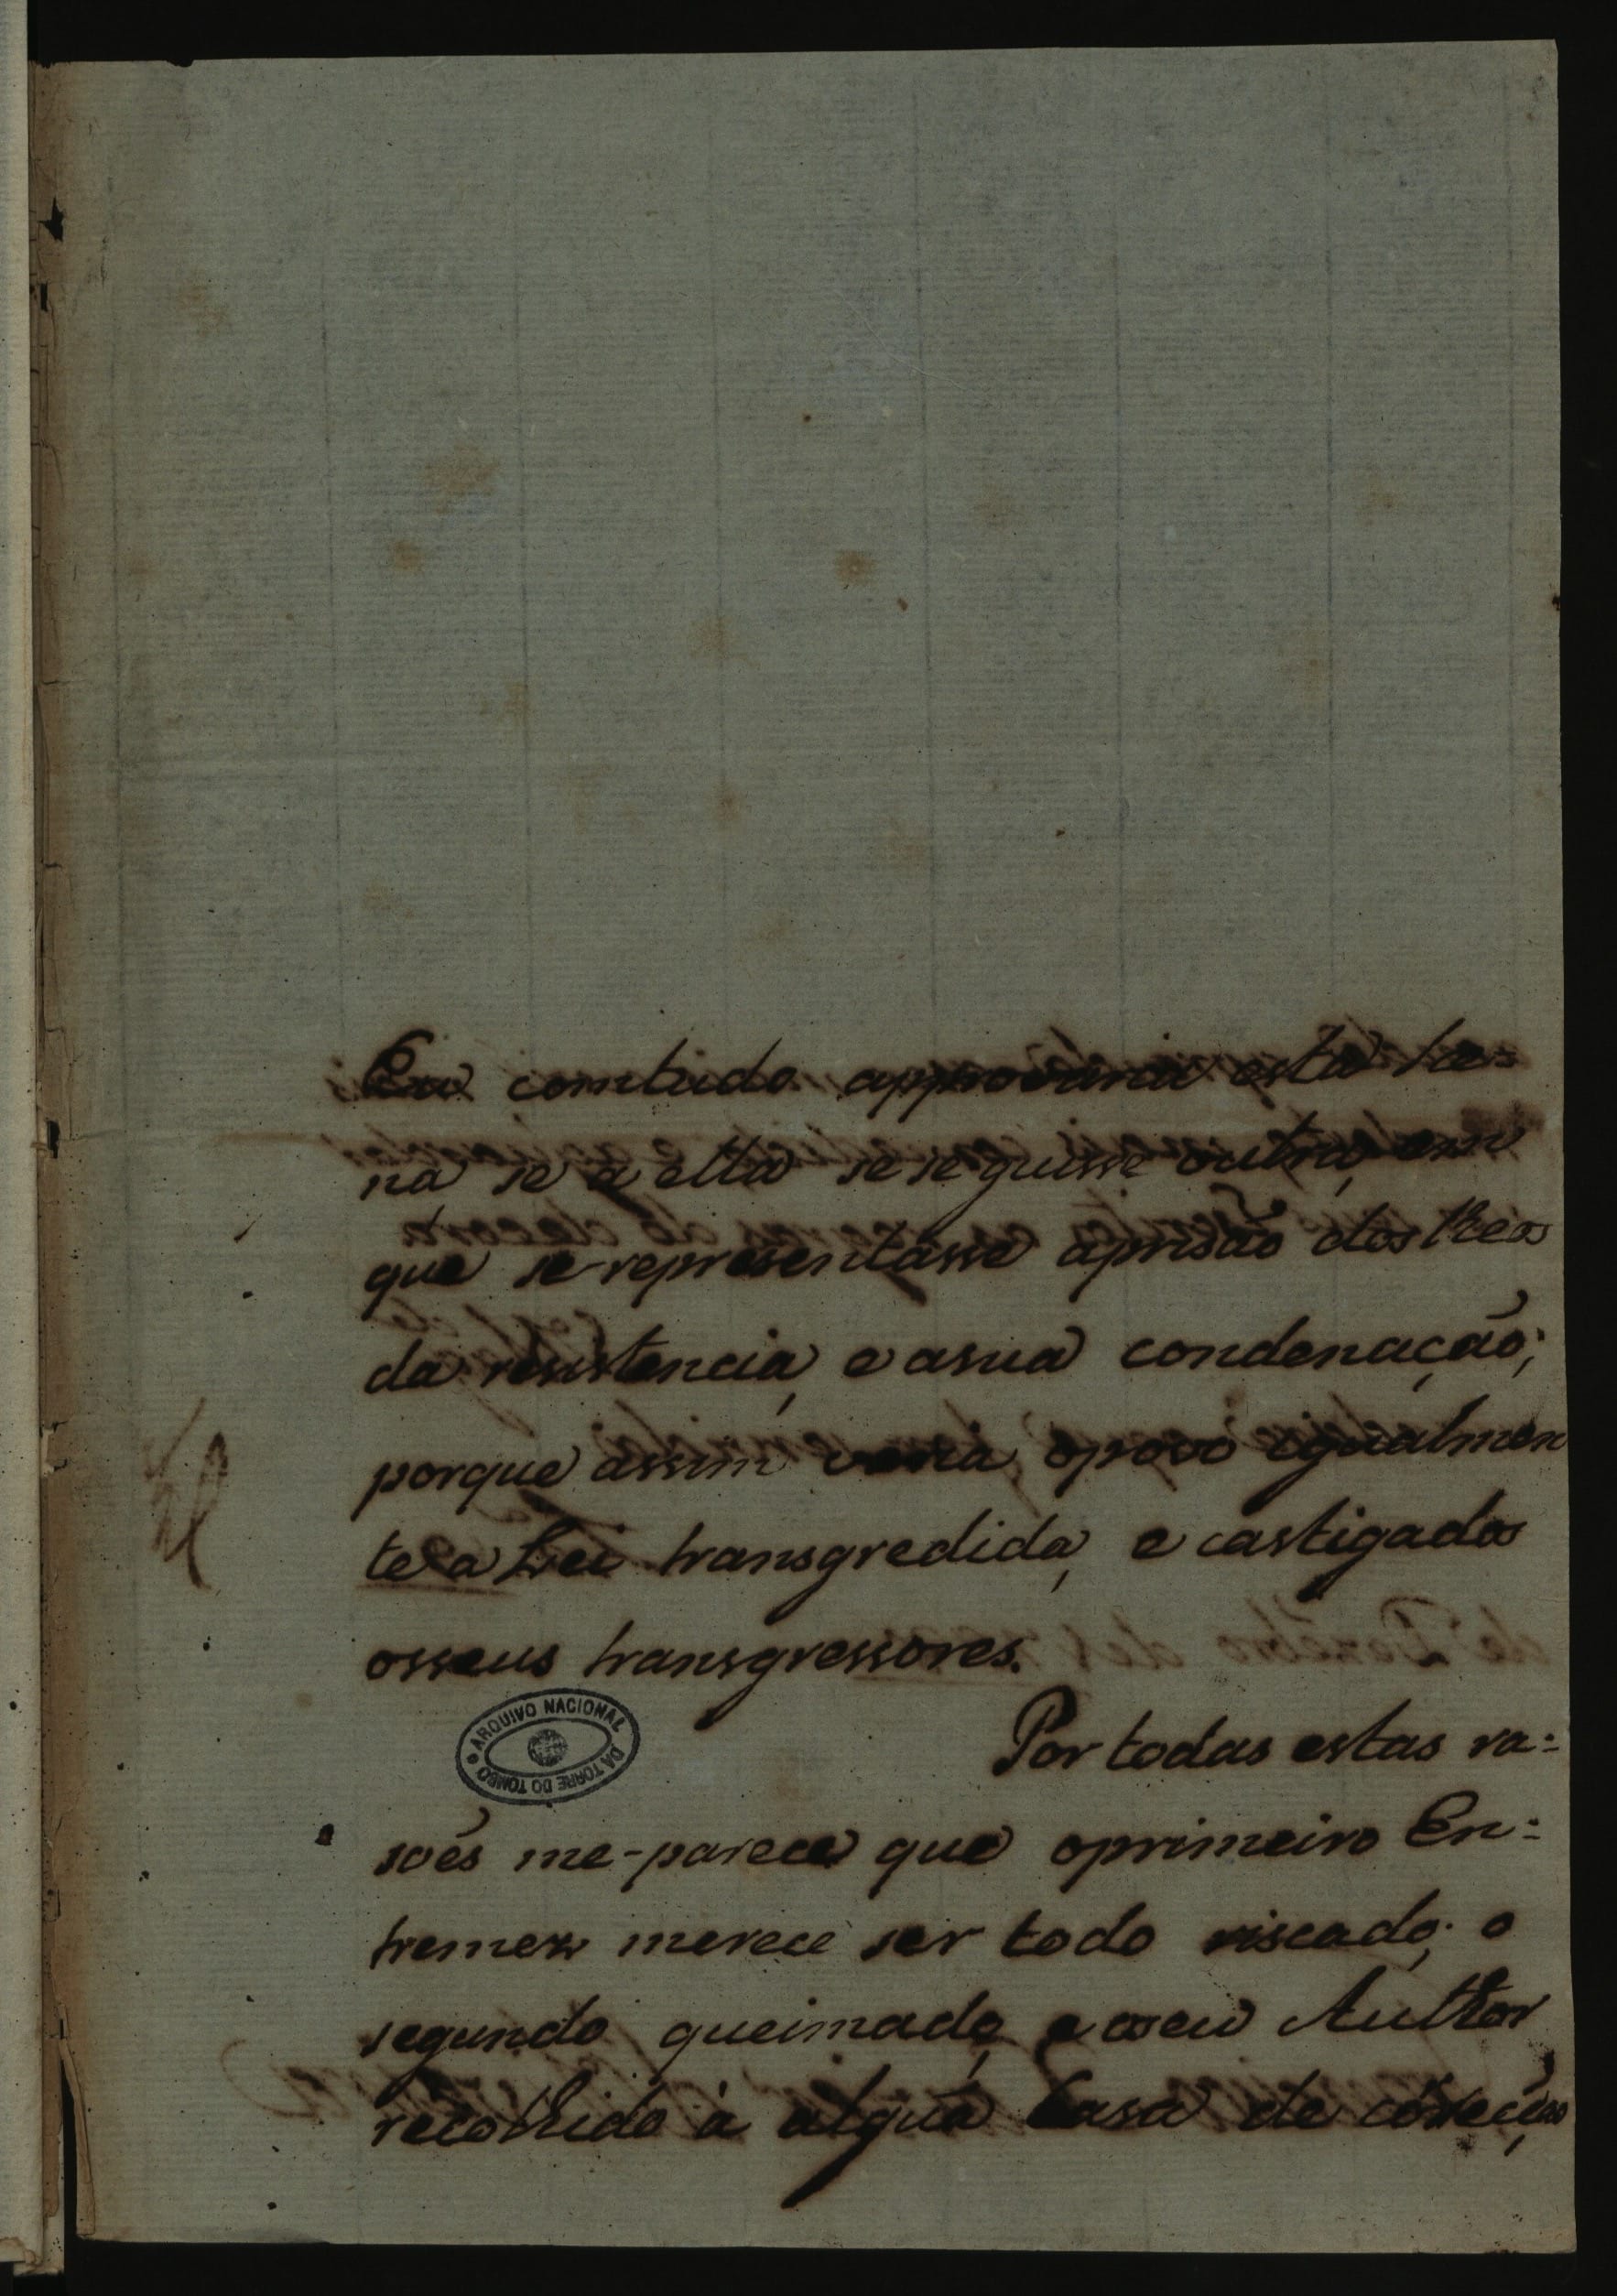 Eu comtudo approvaria esta Se=
na se a ella se seguisse outra, em
que se-representasse aprisaõ dos Reos
da resistencia, e asua condenaçaõ;
porque assim veria, opovo igualmen
te a Lei transgredida, e castigados
osseus transgressores.
ARQUIVO NACIONAL DA TORRE DO TOMBO
Por todas estas ra=
soẽs me-parece que oprimeiro En=
tremez merece ser todo riscado; o
segundo queimado, e oseu Author
recolhido à algũa Casa de correçaõ